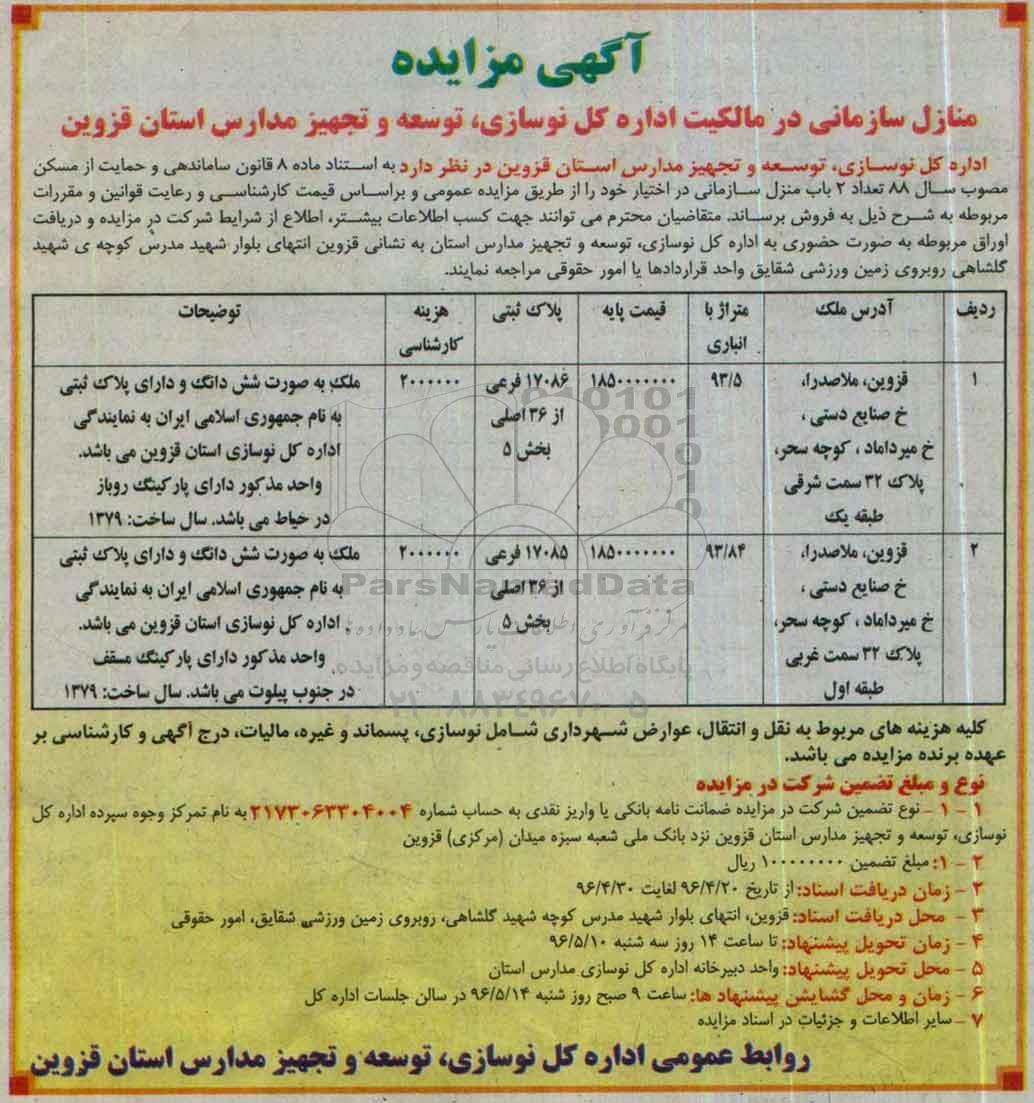 آگهی مزایده
منازل سازمانی در مالکیت اداره کل نوسازی، توسعه و تجهیز مدارس استان قزوین
اداره کل نوسازی، توسعه و تجهیز مدارس استان قزوین در نظر دارد به استناد ماده ۸ قانون ساماندهی و حمایت از مسکن
مصوب سال ۸۸ تعداد ۲ باب منزل سازمانی در اختیار خود را از طریق مزایده عمومی و براساس قیمت کارشناسی و رعایت قوانین و مقررات
مربوطه به شرح ذیل به فروش برساند. متقاضیان محترم می توانند جهت کسب اطلاعات بیشتر، اطلاع از شرایط شرکت در مزایده و دریافت
اوراق مربوطه به صورت حضوری به اداره کل نوسازی، توسعه و تجهیز مدارس استان به نشانی قزوین انتهای بلوار شهید مدرس کوچه ی شهید
گلشاهی روبروی زمین ورزشی شقایق واحد قراردادها یا امور حقوقی مراجعه نمایند.
ردیف آدرس ملک متراژ با قیمت پایه پلاک ثبتی هزینه توضیحات
انباری کارشناسی
۱ قزوین، ملاصدرا، ۹۳/۵ ۱۸۵۰۰۰۰۰۰۰ ۱۷۰۸۶ فرعی ۲۰۰۰۰۰۰ ملک به صورت شش دانگ و دارای پلاک ثبتی
خ صنایع دستی ، از ۳۶ اصلی به نام جمهوری اسلامی ایران به نمایندگی
خ میرداماد ، کوچه سحر، بخش ۵ اداره کل نوسازی استان قزوین می باشد.
پلاک ۳۲ سمت شرقی واحد مذکور دارای پارکینگ روباز
طبقه یک در حیاط می باشد. سال ساخت: ۱۳۷۹
۲ قزوین، ملاصدرا، ۹۳/۸۴ ۱۸۵۰۰۰۰۰۰۰ ۱۷۰۸۵ فرعی ۲۰۰۰۰۰۰ ملک به صورت شش دانگ و دارای پلاک ثبتی
خ صنایع دستی ، از ۳۶ اصلی به نام جمهوری اسلامی ایران به نمایندگی
خ میرداماد ، کوچه سحر، بخش ۵ اداره کل نوسازی استان قزوین می باشد.
پلاک ۳۲ سمت غربی واحد مذکور دارای پارکینگ مسقف
طبقه اول در جنوب پیلوت می باشد. سال ساخت: ۱۳۷۹
ParsNamadData
پایگاه اطلاع رسانی مناقصه و مزایده
۰۲۱-۸۸۳۴۹۶۷۰-۵
کلیه هزینه های مربوط به نقل و انتقال، عوارض شهرداری شامل نوسازی، پسماند و غیره، مالیات، درج آگهی و کارشناسی بر
عهده برنده مزایده می باشد.
نوع و مبلغ تضمین شرکت در مزایده
۱ - ۱ - نوع تضمین شرکت در مزایده ضمانت نامه بانکی یا واریز نقدی به حساب شماره ۲۱۷۳۰۶۳۳۰۴۰۰۴ به نام تمرکز وجوه سپرده اداره کل
نوسازی، توسعه و تجهیز مدارس استان قزوین نزد بانک ملی شعبه سبزه میدان (مرکزی) قزوین
۲ - ۱: مبلغ تضمین ۱۰۰۰۰۰۰۰۰ ریال
۲ - زمان دریافت اسناد: از تاریخ ۹۶/۴/۲۰ لغایت ۹۶/۴/۳۰
۳ - محل دریافت اسناد: قزوین، انتهای بلوار شهید مدرس کوچه شهید گلشاهی، روبروی زمین ورزشی شقایق، امور حقوقی
۴ - زمان تحویل پیشنهاد: تا ساعت ۱۴ روز سه شنبه ۹۶/۵/۱۰
۵ - محل تحویل پیشنهاد: واحد دبیرخانه اداره کل نوسازی مدارس استان
۶ - زمان و محل گشایش پیشنهاد ها: ساعت ۹ صبح روز شنبه ۹۶/۵/۱۴ در سالن جلسات اداره کل
۷ - سایر اطلاعات و جزئیات در اسناد مزایده
روابط عمومی اداره کل نوسازی، توسعه و تجهیز مدارس استان قزوین